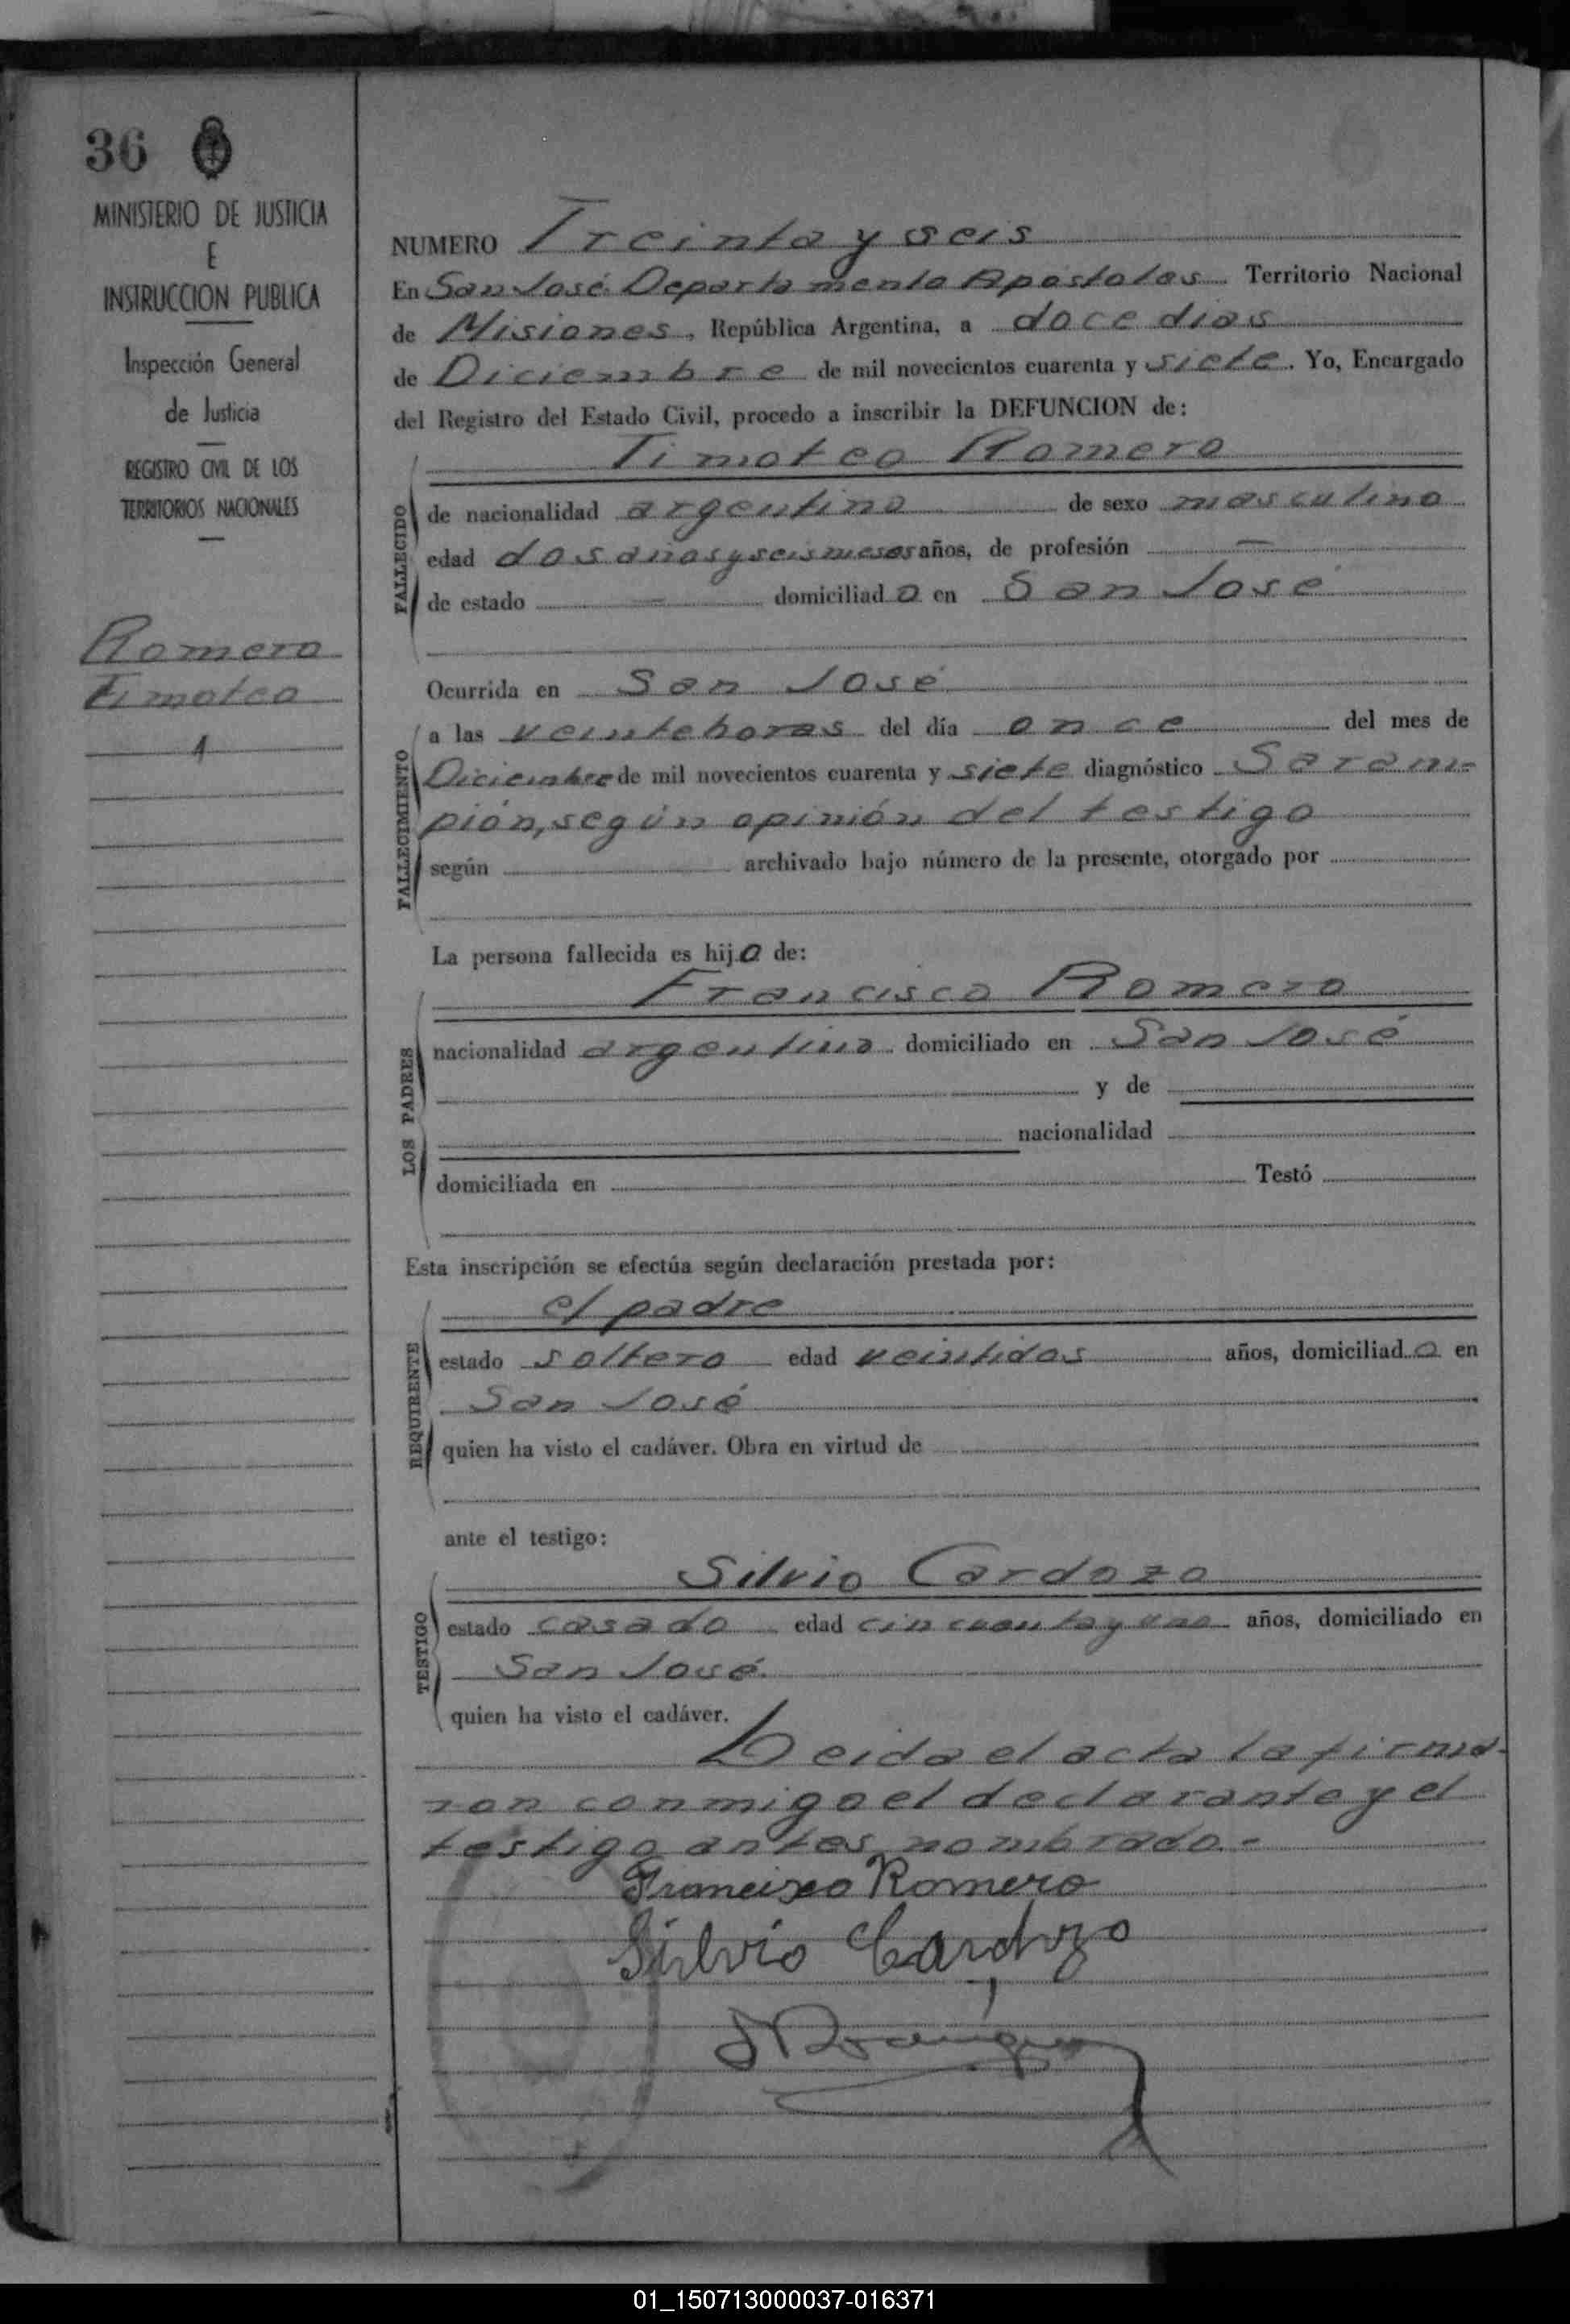 36
MINISTERIO DE JUSTICIA
E
INSTRUCCION PUBLICA
Inspección General
de Justicia
REGISTRO CIVIL DE LOS
TERRITORIOS NACIONALES
Romero
Timoteo
1
NUMERO Treinta y seis
En San José Departamento Apóstoles Territorio Nacional
de Misiones, República Argentina, a doce dias
de Diciembre de mil novecientos cuarenta y siete. Yo, Encargado
del Registro del Estado Civil, procedo a inscribir la DEFUNCION de:
Timoteo Romero
FALLECIDO
de nacionalidad argentino de sexo masculino
edad dos años y seis meses años, de profesión —
de estado — domiciliado en San José
Ocurrida en San José
FALLECIMIENTO
a las veinte horas del día once del mes de
Diciembre de mil novecientos cuarenta y siete diagnóstico Saram-
pión, según opinión del testigo
según archivado bajo número de la presente, otorgado por
La persona fallecida es hijo de:
Francisco Romero
LOS PADRES
nacionalidad argentino domiciliado en San José
y de
nacionalidad
domiciliada en Testó
Esta inscripción se efectúa según declaración prestada por:
el padre
REQUIRENTE
estado soltero edad veintidos años, domiciliado en
San José
quien ha visto el cadáver. Obra en virtud de
ante el testigo:
Silvio Cardozo
TESTIGO
estado casado edad cincuenta y uno años, domiciliado en
San José
quien ha visto el cadáver.
Leida el acta la firma-
ron conmigo el declarante y el
testigo antes nombrado.-
Francisco Romero
Silvio Cardozo
01_150713000037-016371